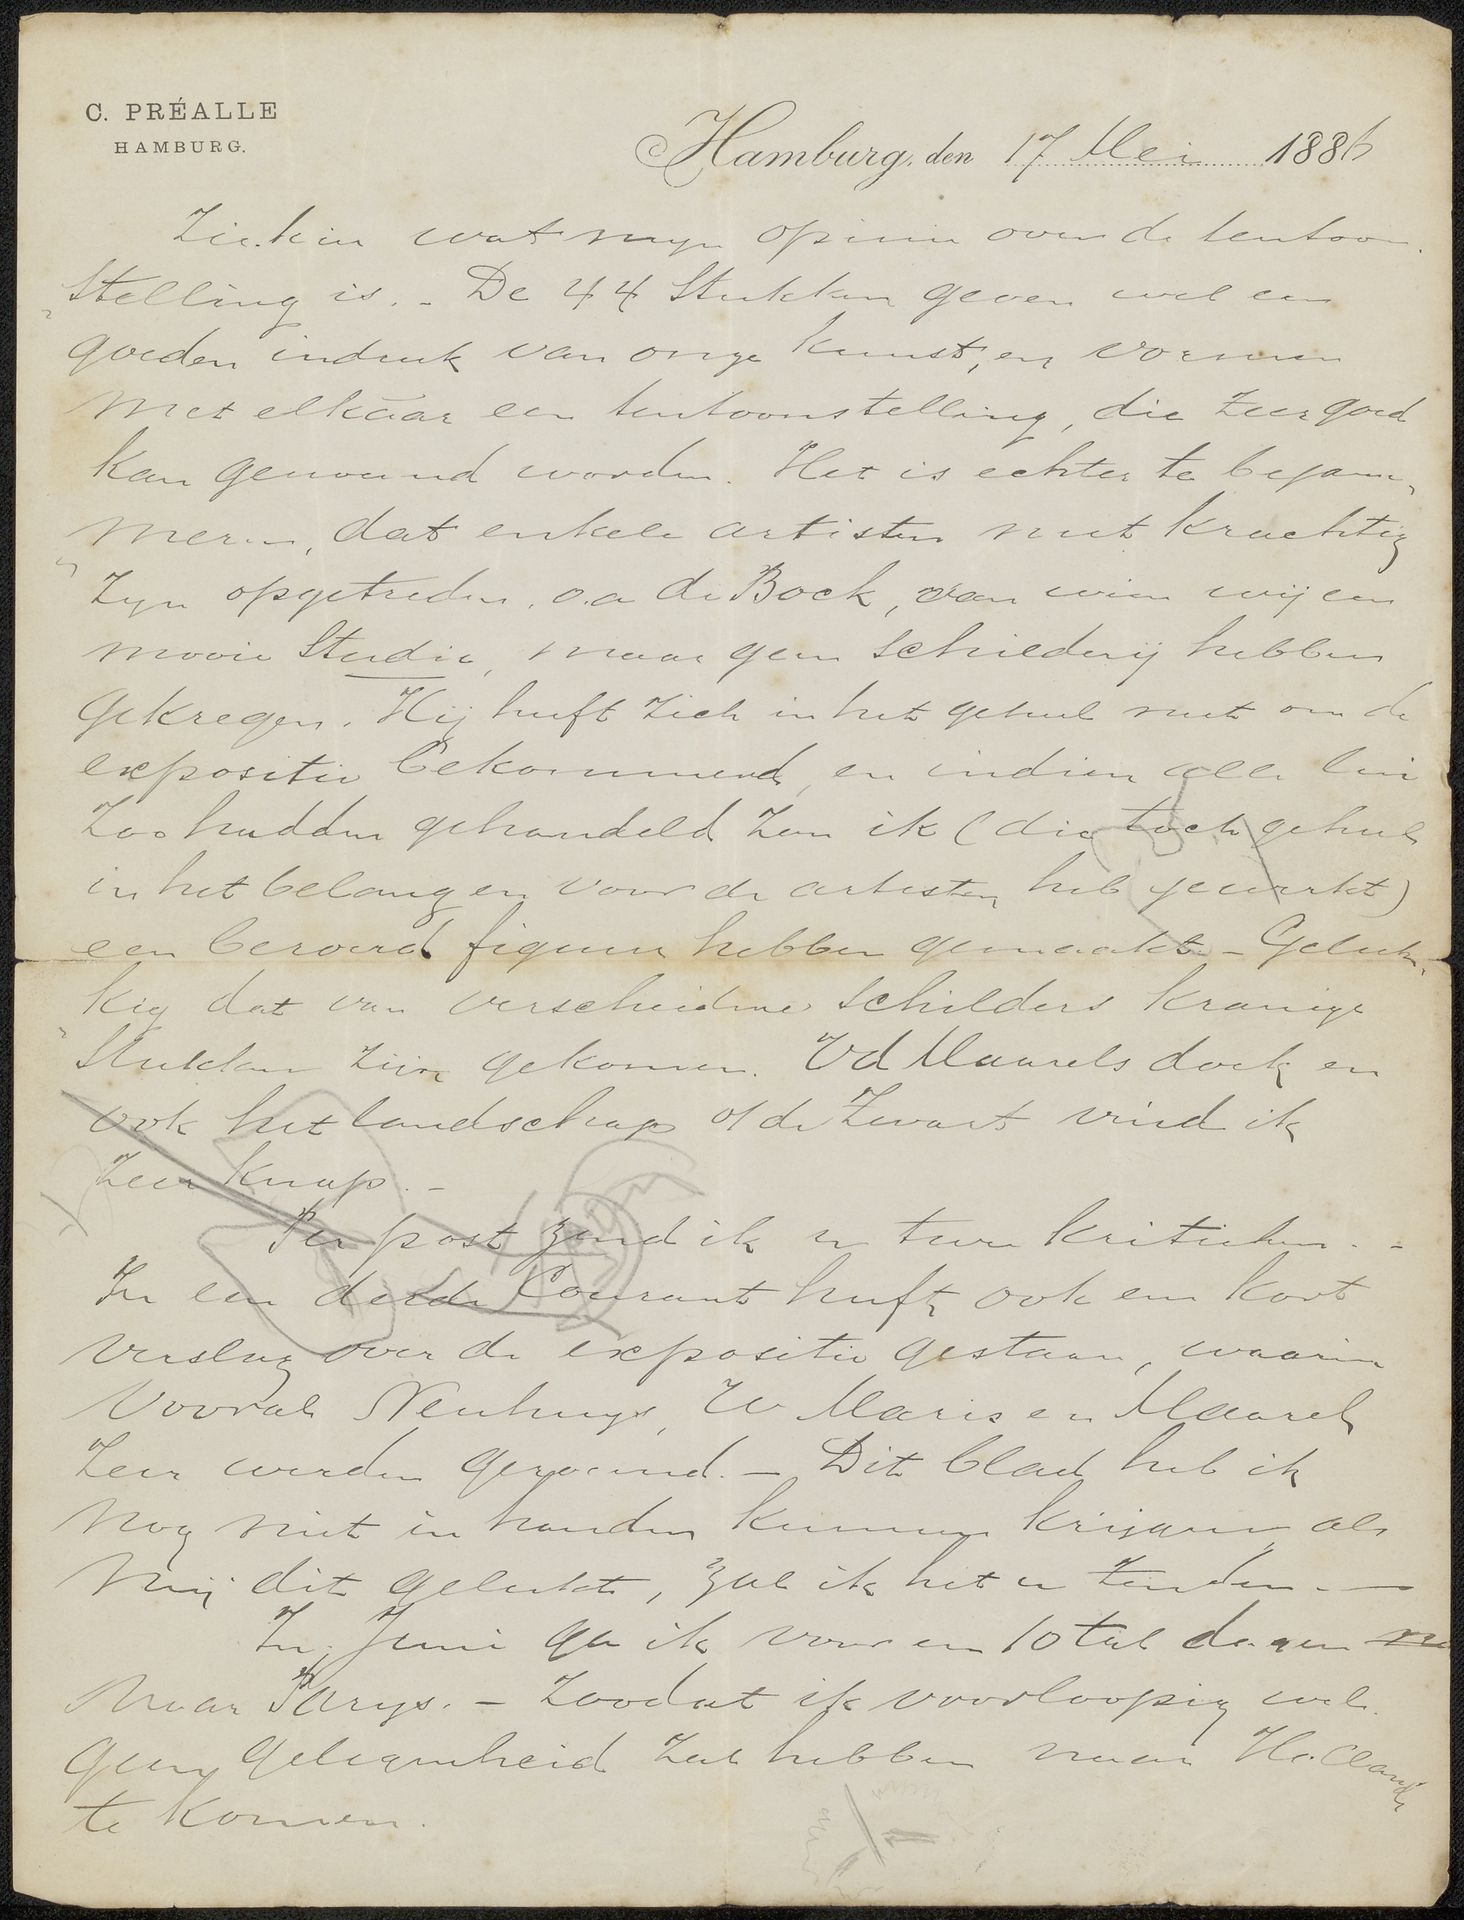 C. PRÉALLE
HAMBURG.
Hamburg, den 17 Mei 1886
Ziehier wat mijn opinie over de tentoon-
stelling is. - De 44 stukken geven wel een
goeden indruk van onze kunst, en vormen
met elkaar een tentoonstelling, die zeer goed
kan genoemd worden. Het is echter te bejam-
meren, dat enkele artisten niet krachtig
zijn opgetreden, o.a de Bock, van wien wij een
mooie studie, maar geen schilderij hebben
gekregen. Hij heeft zich in het geheel niet om de
expositie bekommerd, en indien alle lui
zoo hadden gehandeld zou ik (die toch geheel
in het belang en voor de artisten heb gewerkt)
een beroerd figuur hebben gemaakt. - Geluk-
kig dat van verscheidene schilders kranige
stukken zijn gekomen. Vd Maarels doek en
ook het landschap v/d Zwart vind ik
zeer knap. -
Per post zend ik u twee kritieken. -
In een derde Courant heeft ook een kort
verslag over de expositie gestaan, waarin
vooral Neuhuys, W Maris en Maarel
zeer werden geroemd. - Dit blad heb ik
nog niet in handen kunnen krijgen, als
mij dit gelukt, zal ik het u zenden. -
In Juni ga ik voor een 10 tal dagen
naar Parijs. - Zoodat ik voorloopig wel
geen gelegenheid zal hebben naar Holland
te komen.